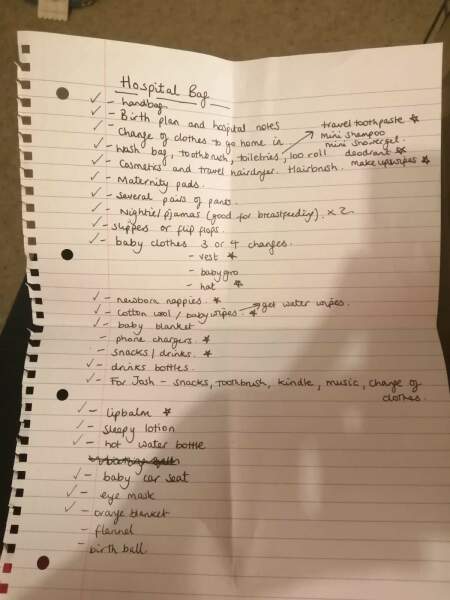 Hospital Bag
✓ - handbag
✓ - Birth plan and hospital notes
✓ - Change of clothes to go home in
✓ - wash bag, toothbrush, toiletries, loo roll
travel toothpaste ☆
mini shampoo
mini shower gel
deodrant ☆
makeup wipes ☆
✓ - Cosmetics and travel hairdryer. Hairbrush.
✓ - Maternity pads.
✓ - Several pairs of pants.
✓ - Nightie/pjamas (good for breastfeeding). x 2
✓ - slippers or flip flops.
✓ - baby clothes 3 or 4 changes.
- vest ☆
- babygro
- hat ☆
✓ - newborn nappies. ☆
✓ - cotton wool / baby wipes. ☆ → get water wipes.
✓ - baby blanket
- phone chargers. ☆
- snacks / drinks. ☆
✓ - drinks bottles.
✓ - For Josh - snacks, toothbrush, kindle, music, change of
clothes.
✓ - lipbalm ☆
✓ - sleepy lotion
✓ - hot water bottle
✓ - baby car seat
✓ - eye mask
✓ - orange blanket
- flannel
- birth ball